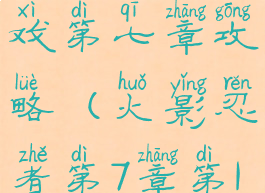 xì dì qī zhāng gōng
戏第七章攻
lüè huǒ yǐng rěn
略(火影忍
zhě dì zhāng dì
者第7章第1